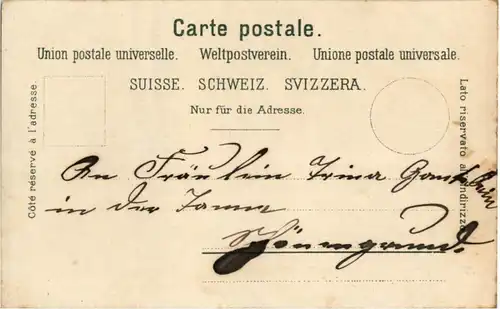 Carte postale.
Union postale universelle. Weltpostverein. Unione postale universale.
SUISSE. SCHWEIZ. SVIZZERA.
Nur für die Adresse.
Côté réservé à l'adresse.
Lato riservato all'indirizzo.
An Fräulein Trina
in der Tanne
Schönengrund.